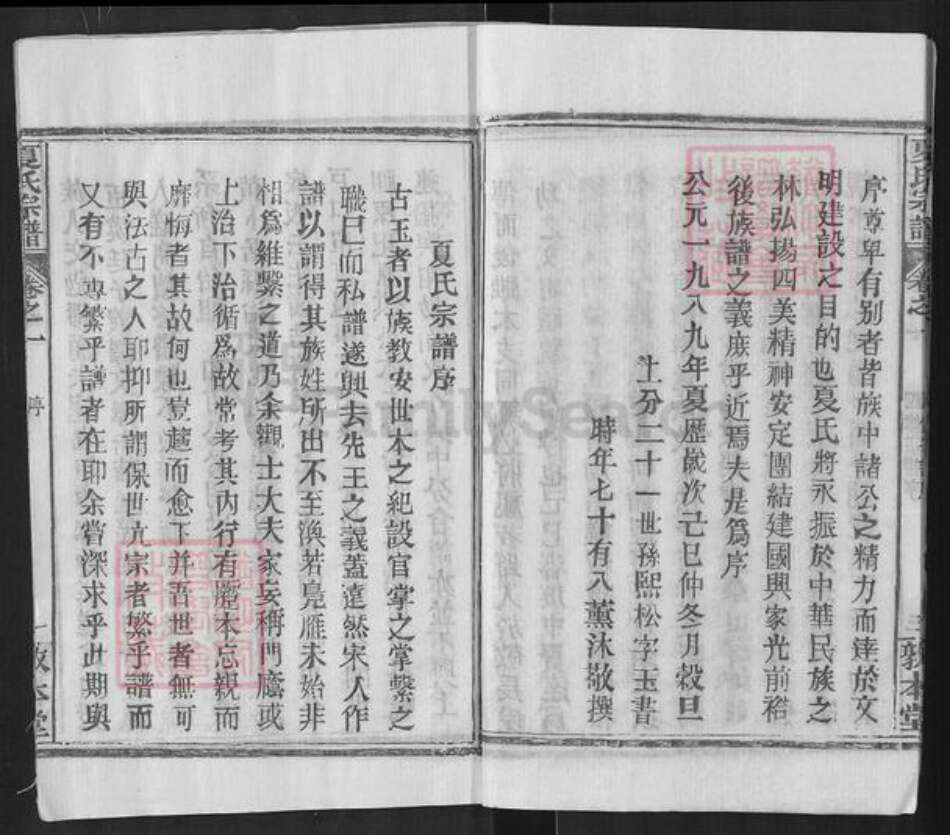 序尊卑有別者皆族中諸公之精力而達於文
明建設之目的也夏氏將永振於中華民族之
林弘揚四美精神安定團結建國興家光前裕
後族譜之義庶乎近焉夫是為序
公元一九八九年夏歷歲次己巳仲冬月穀旦
上分二十一世孫熙松字玉書
時年七十有八薰沐敬撰
三 敦本堂
夏氏宗譜 卷之一 序
夏氏宗譜序
古王者以族教安世本之紀設官掌之掌繫之
職已而私譜遂興去先王之義蓋遠然宋人作
譜以謂得其族姓所出不至渙若鳧雁未始非
相為維繫之道乃余觀士大夫家妄稱門廕或
上治下治循為故常考其內行有蹷本忘親而
靡悔者其故何也豈趨而愈下并吾世者無可
與法古之人耶抑所謂保世亢宗者繁乎譜而
又有不專繫乎譜者在耶余嘗深求乎此期與
一 敦本堂
FamilySearch